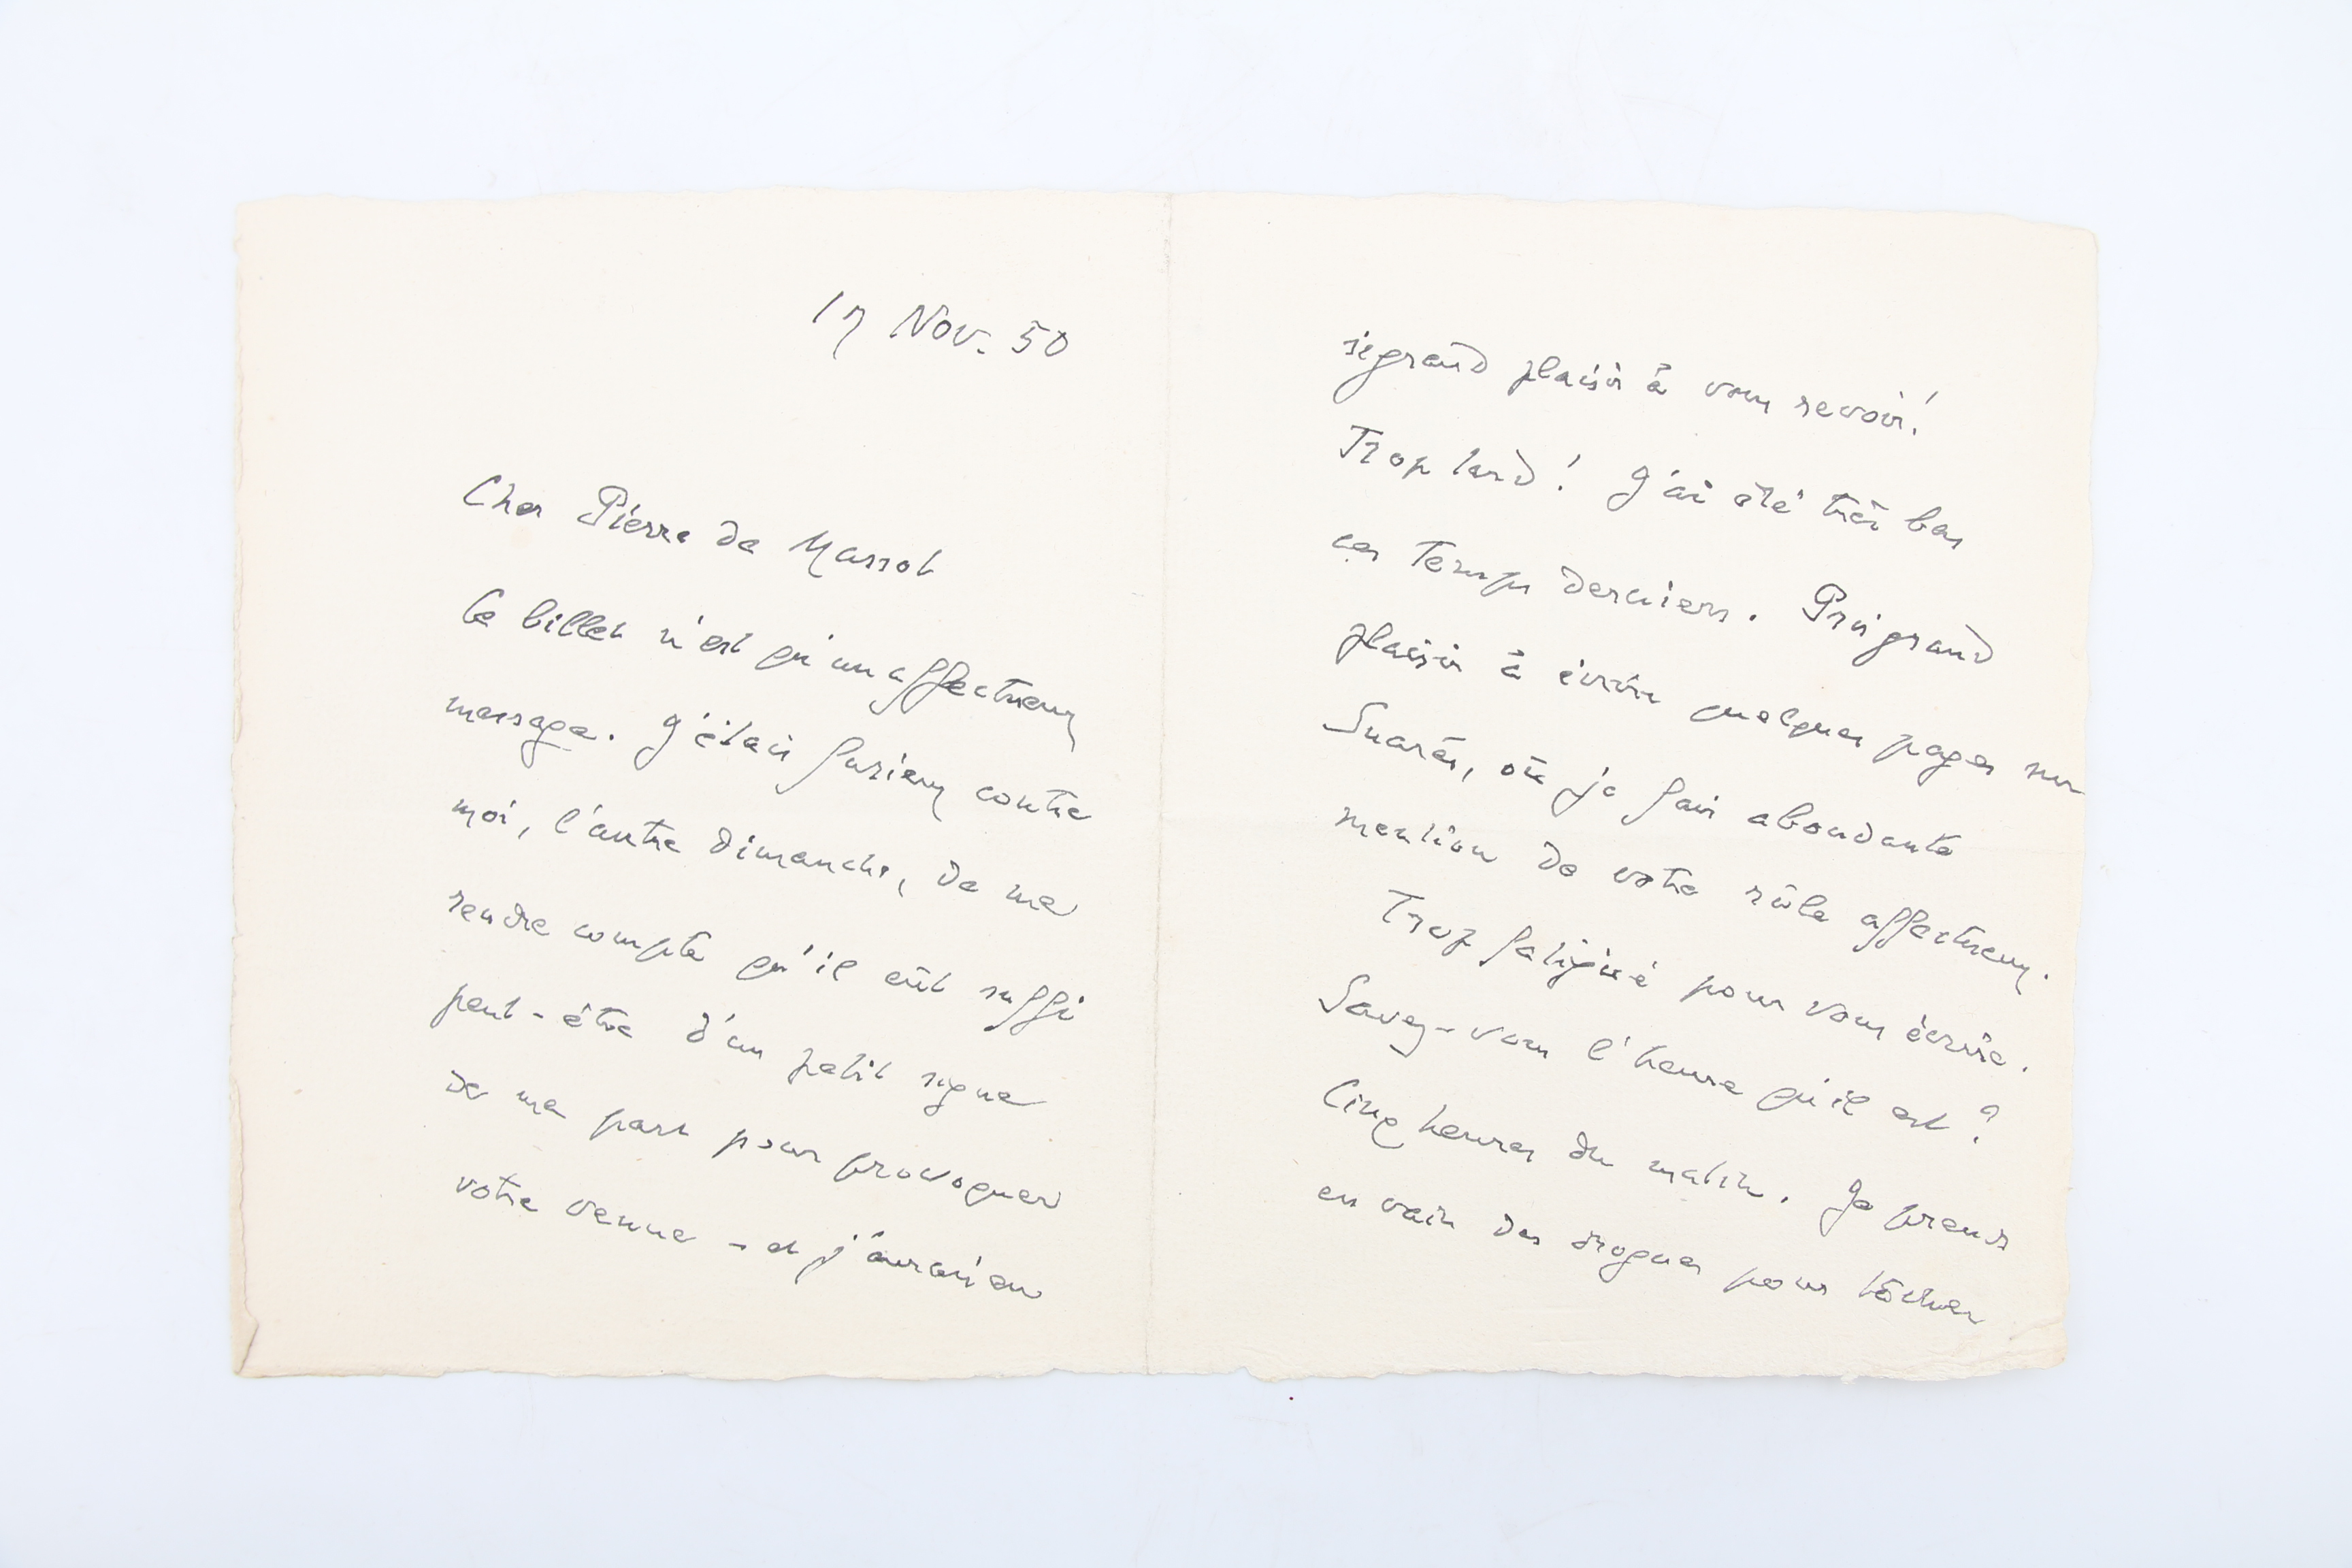 17 Nov. 50
Cher Pierre de Massot
Ce billet n'est qu'un affectueux
message. J'étais furieux contre
moi, l'autre dimanche, de me
rendre compte qu'il eût suffi
peut-être d'un petit signe
de ma part pour provoquer
votre venue - et j'aurais eu
si grand plaisir à vous revoir!
Trop tard! J'ai été très bas
ces temps derniers. Pris grand
plaisir à écrire quelques pages sur
Suarès, où je fais abondante
mention de votre rôle affectueux.
Trop fatigué pour vous écrire.
Savez-vous l'heure qu'il est?
Cinq heures du matin. Je prends
en vain des drogues pour tâcher